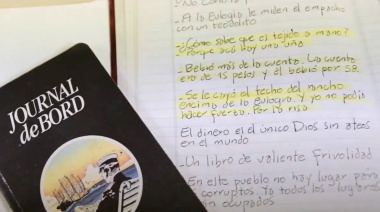 JOURNAL
de BORD
- No contro
- A la Eulogia le miden el empacho
con un teodolito
- ¿Cómo sabe que es tejido a mano?
Porque acá hay una uña
- Bebió más de la cuenta. La cuenta
era de 15 pesos y él bebió por 58.
- Se le cayó el techo del rancho
encima de la Eulogia. Y yo no podía
hacer fuerza. Por la risa
El dinero es el único Dios sin ateos
en el mundo
Un libro de valiente frivolidad
- En este pueblo no hay lugar para
corruptos. Ya todos los lugares
n ocupados